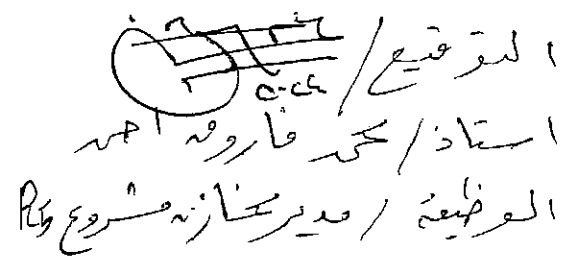 التوقيع /
استاذ / محمد فاروق احمد
الوظيفة / مدير مخازن مشروع